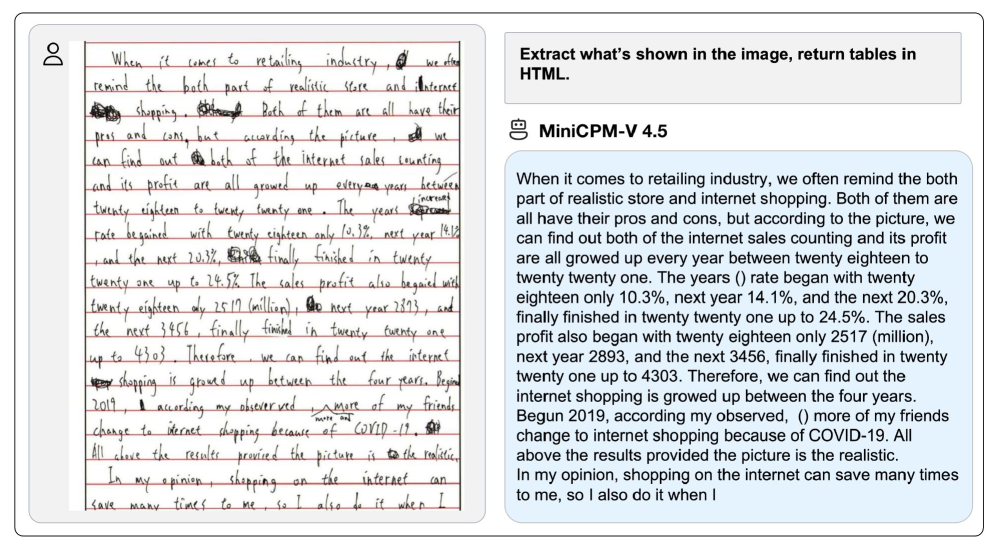 When it comes to retailing industry, we often
remind the both part of realistic store and internet
shopping. Both of them are all have their
pros and cons, but according the picture, we
can find out both of the internet sales counting
and its profit are all growed up every years between
twenty eighteen to twenty twenty one. The years increased
rate begained with twenty eighteen only 10.3%, next year 14.1%
, and the next 20.3%, finally finished in twenty
twenty one up to 24.5%. The sales profit also begaied with
twenty eighteen only 2517 (million), next year 2893, and
the next 3456, finally finished in twenty twenty one
up to 4303. Therefore, we can find out the internet
shopping is growed up between the four years. Begind
2019, according my observerved more and more of my friends
change to internet shopping because of COVID-19.
All above the results provired the picture is the realistic.
In my opinion, shopping on the internet can
save many times to me, so I also do it when I
Extract what's shown in the image, return tables in
HTML.
MiniCPM-V 4.5
When it comes to retailing industry, we often remind the both
part of realistic store and internet shopping. Both of them are
all have their pros and cons, but according to the picture, we
can find out both of the internet sales counting and its profit
are all growed up every year between twenty eighteen to
twenty twenty one. The years () rate began with twenty
eighteen only 10.3%, next year 14.1%, and the next 20.3%,
finally finished in twenty twenty one up to 24.5%. The sales
profit also began with twenty eighteen only 2517 (million),
next year 2893, and the next 3456, finally finished in twenty
twenty one up to 4303. Therefore, we can find out the
internet shopping is growed up between the four years.
Begun 2019, according my observed, () more of my friends
change to internet shopping because of COVID-19. All
above the results provided the picture is the realistic.
In my opinion, shopping on the internet can save many times
to me, so I also do it when I